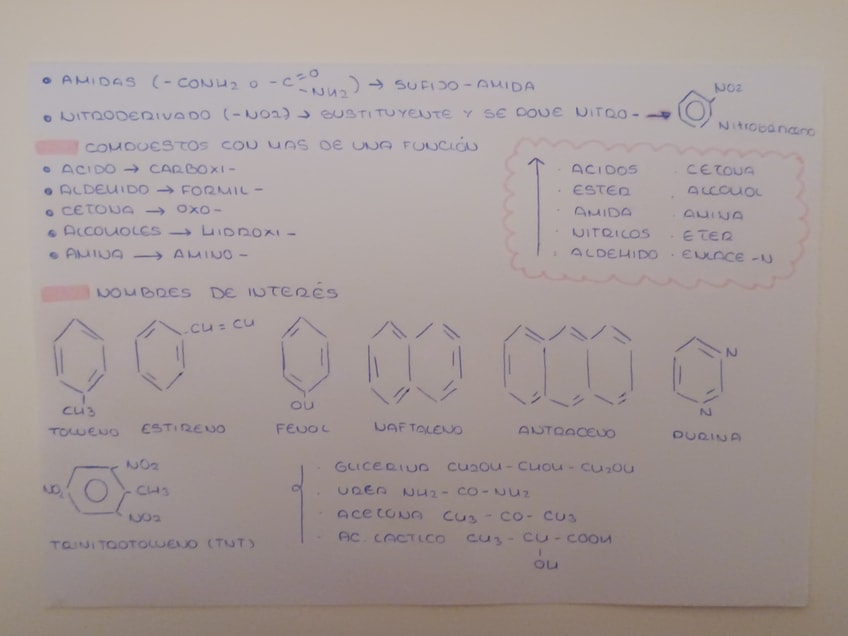 • AMIDAS (-CONH2 O -C=O -NH2) → SUFIJO-AMIDA
• NITRODERIVADO (-NO2) → SUSTITUYENTE Y SE PONE NITRO- →
NO2
Nitrobenceno
COMPUESTOS CON MAS DE UNA FUNCIÓN
• ACIDO → CARBOXI-
• ALDEHIDO → FORMIL-
• CETONA → OXO-
• ALCOHOLES → HIDROXI-
• AMINA → AMINO-
· ACIDOS · CETONA
· ESTER · ALCOHOL
· AMIDA · AMINA
· NITRICOS · ETER
· ALDEHIDO · ENLACE-N
NOMBRES DE INTERÉS
CH3
TOLUENO
CH=CH
ESTIRENO
OH
FENOL
NAFTALENO
ANTRACENO
N
N
PURINA
NO2
NO2 CH3
NO2
TRINITROTOLUENO (TNT)
· GLICERINA CH2OH-CHOH-CH2OH
· UREA NH2-CO-NH2
· ACETONA CH3-CO-CH3
· AC. LACTICO CH3-CH-COOH
OH